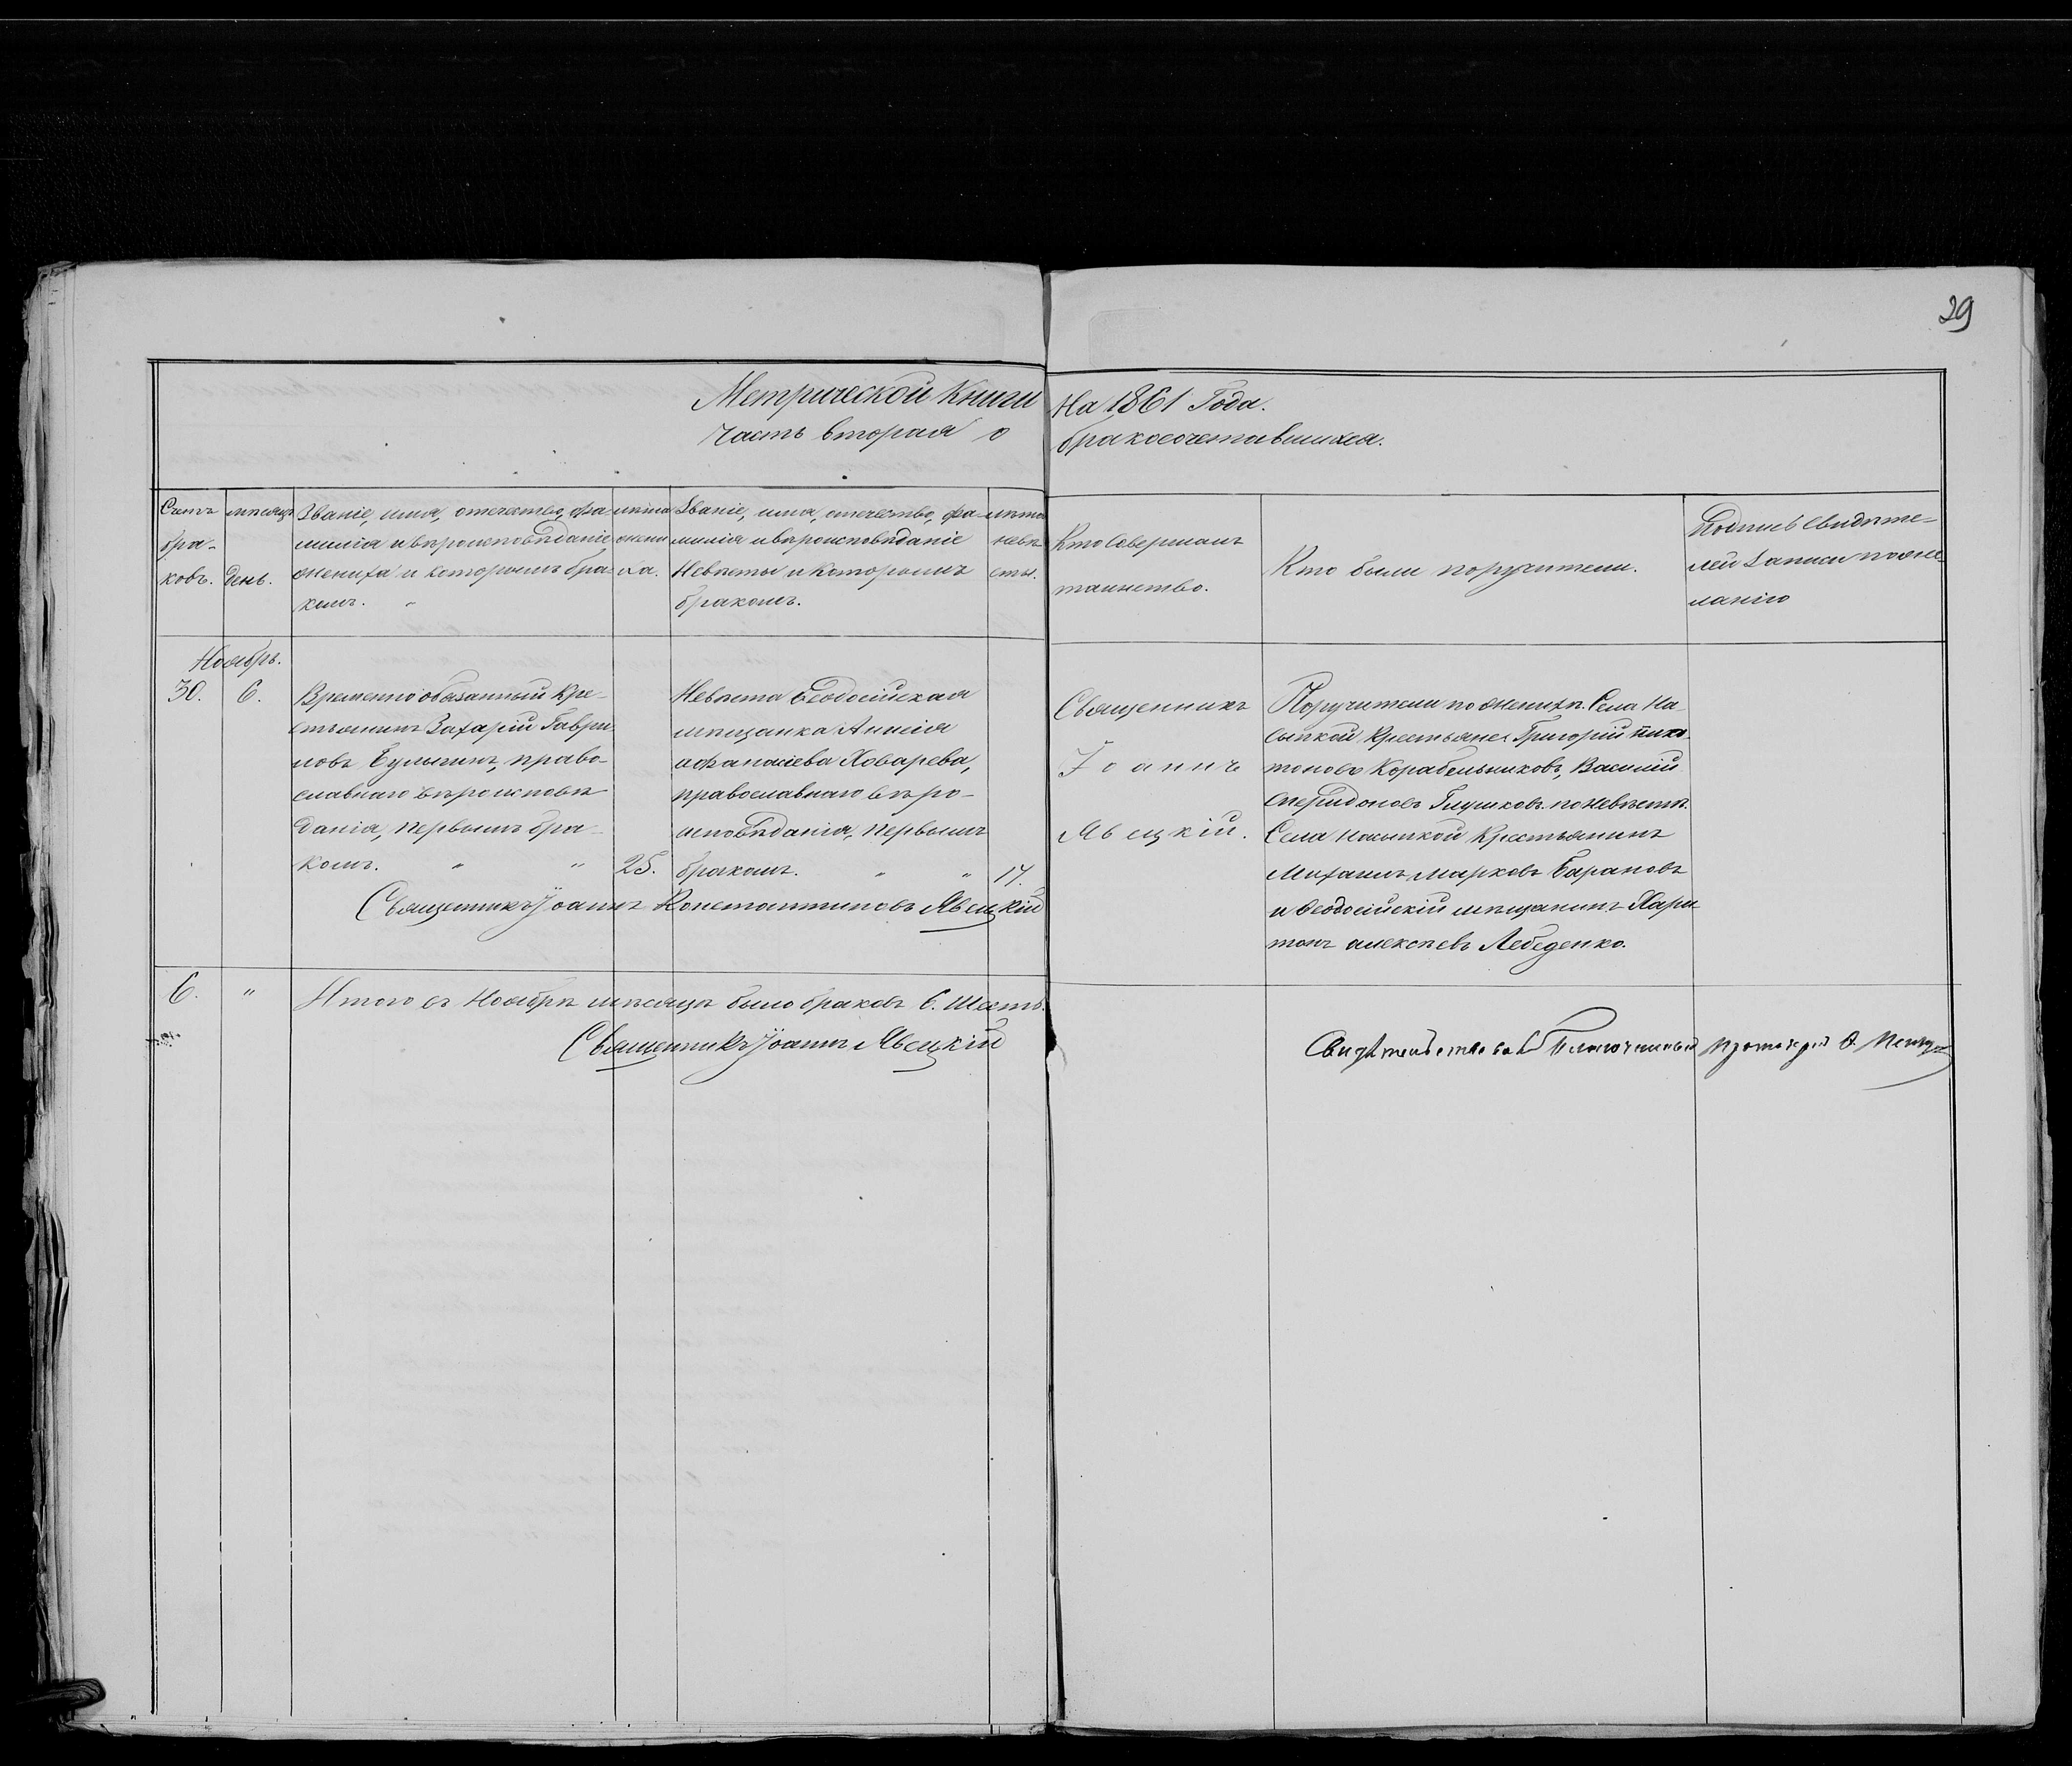 29
Метрической Книги На 1861 Года.
Часть вторая о бракосочетавшихся.
Счетъ бра-ковъ.
мѣсяцъ день.
Званіе, имя, отчество, фа-
милія и вѣроисповѣданіе
жениха и которымъ бра-
комъ.
лѣта жени
ха.
Званіе, имя, отчество, фа-
милія и вѣроисповѣданіе
Невѣсты и Которымъ
бракомъ.
лѣта
невѣ
сты.
Кто Совершалъ
таинство.
Кто были поручители.
Подпись Свидѣте-
лей Записи по же-
ланію
Ноябрь.
30. 6.
Временно обязанный Кре-
стьянинъ Захарій Гаври
ловъ Булыгинъ, право-
славнаго вѣроисповѣ
данія, первымъ бра-
комъ. " "
25.
Невѣста Ѳеодосійская
мѣщанка Анисія
Афанасіева Ховарева,
православнаго вѣро-
исповѣданія, первымъ
бракомъ. " "
17.
Священникъ
Іоаннъ
Явецкій.
Поручители по женихѣ. Села На
сыпкой Крестьяне Григорій
тоновъ Корабельниковъ, Василій
Спиридоновъ Глушковъ. по невѣстѣ
Села Насыпкой Крестьянинъ
Михаилъ Марковъ Барановъ
и Ѳеодосійскій мѣщанинъ Хари
тонъ Алексѣевъ Лебеденко.
Священникъ Іоаннъ Константиновъ Явецкій
6. " Итого въ Ноябрѣ мѣсяцѣ было браковъ 6. Шесть.
Священникъ Іоаннъ Явецкій
Свидѣтельствовалъ Благочинный Протоіерей